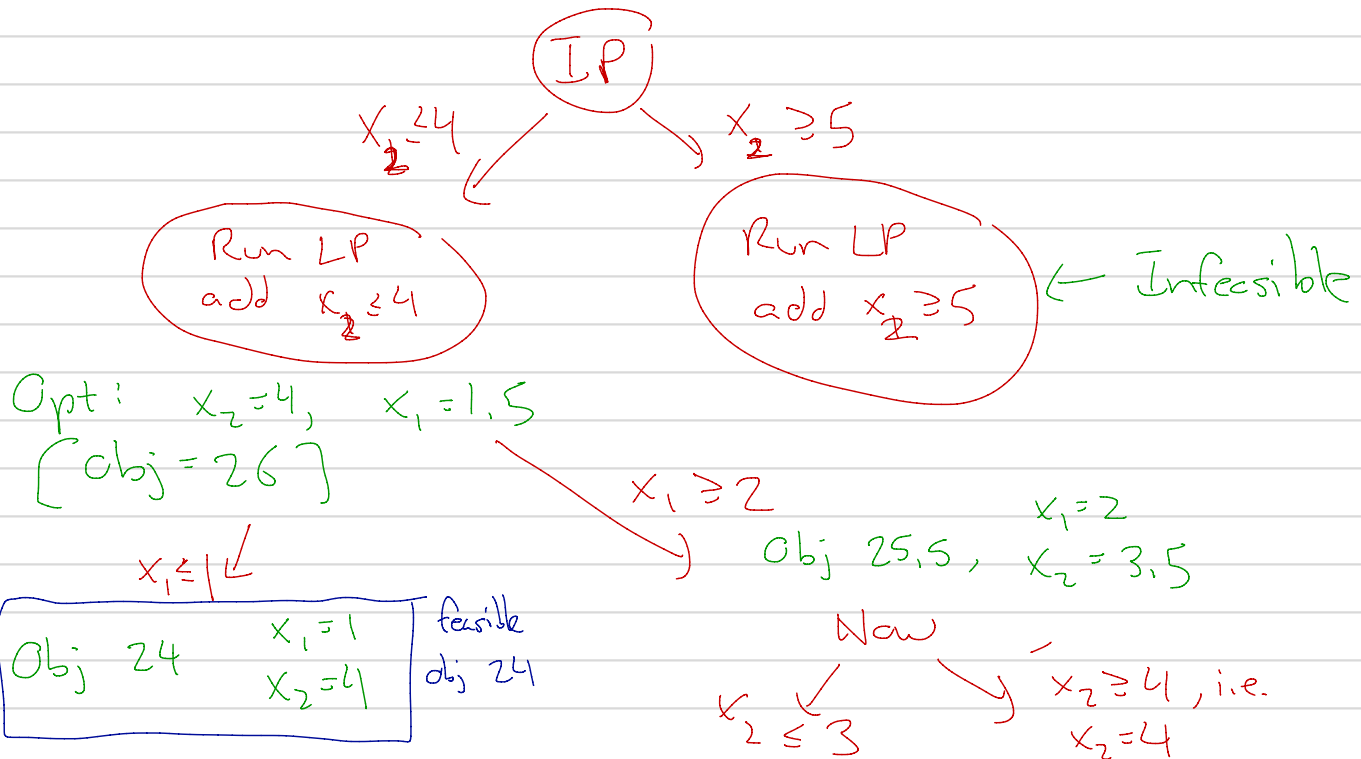 IP
x₂ ≤ 4
x₂ ≥ 5
Run LP
add x₂ ≤ 4
Run LP
add x₂ ≥ 5
← Infeasible
Opt: x₂ = 4, x₁ = 1.5
[Obj = 26]
x₁ ≥ 2
Obj 25.5, x₁ = 2
x₂ = 3.5
x₁ ≤ 1
Obj 24 x₁ = 1
x₂ = 4
feasible
obj 24
Now
x₂ ≤ 3
x₂ ≥ 4, i.e.
x₂ = 4